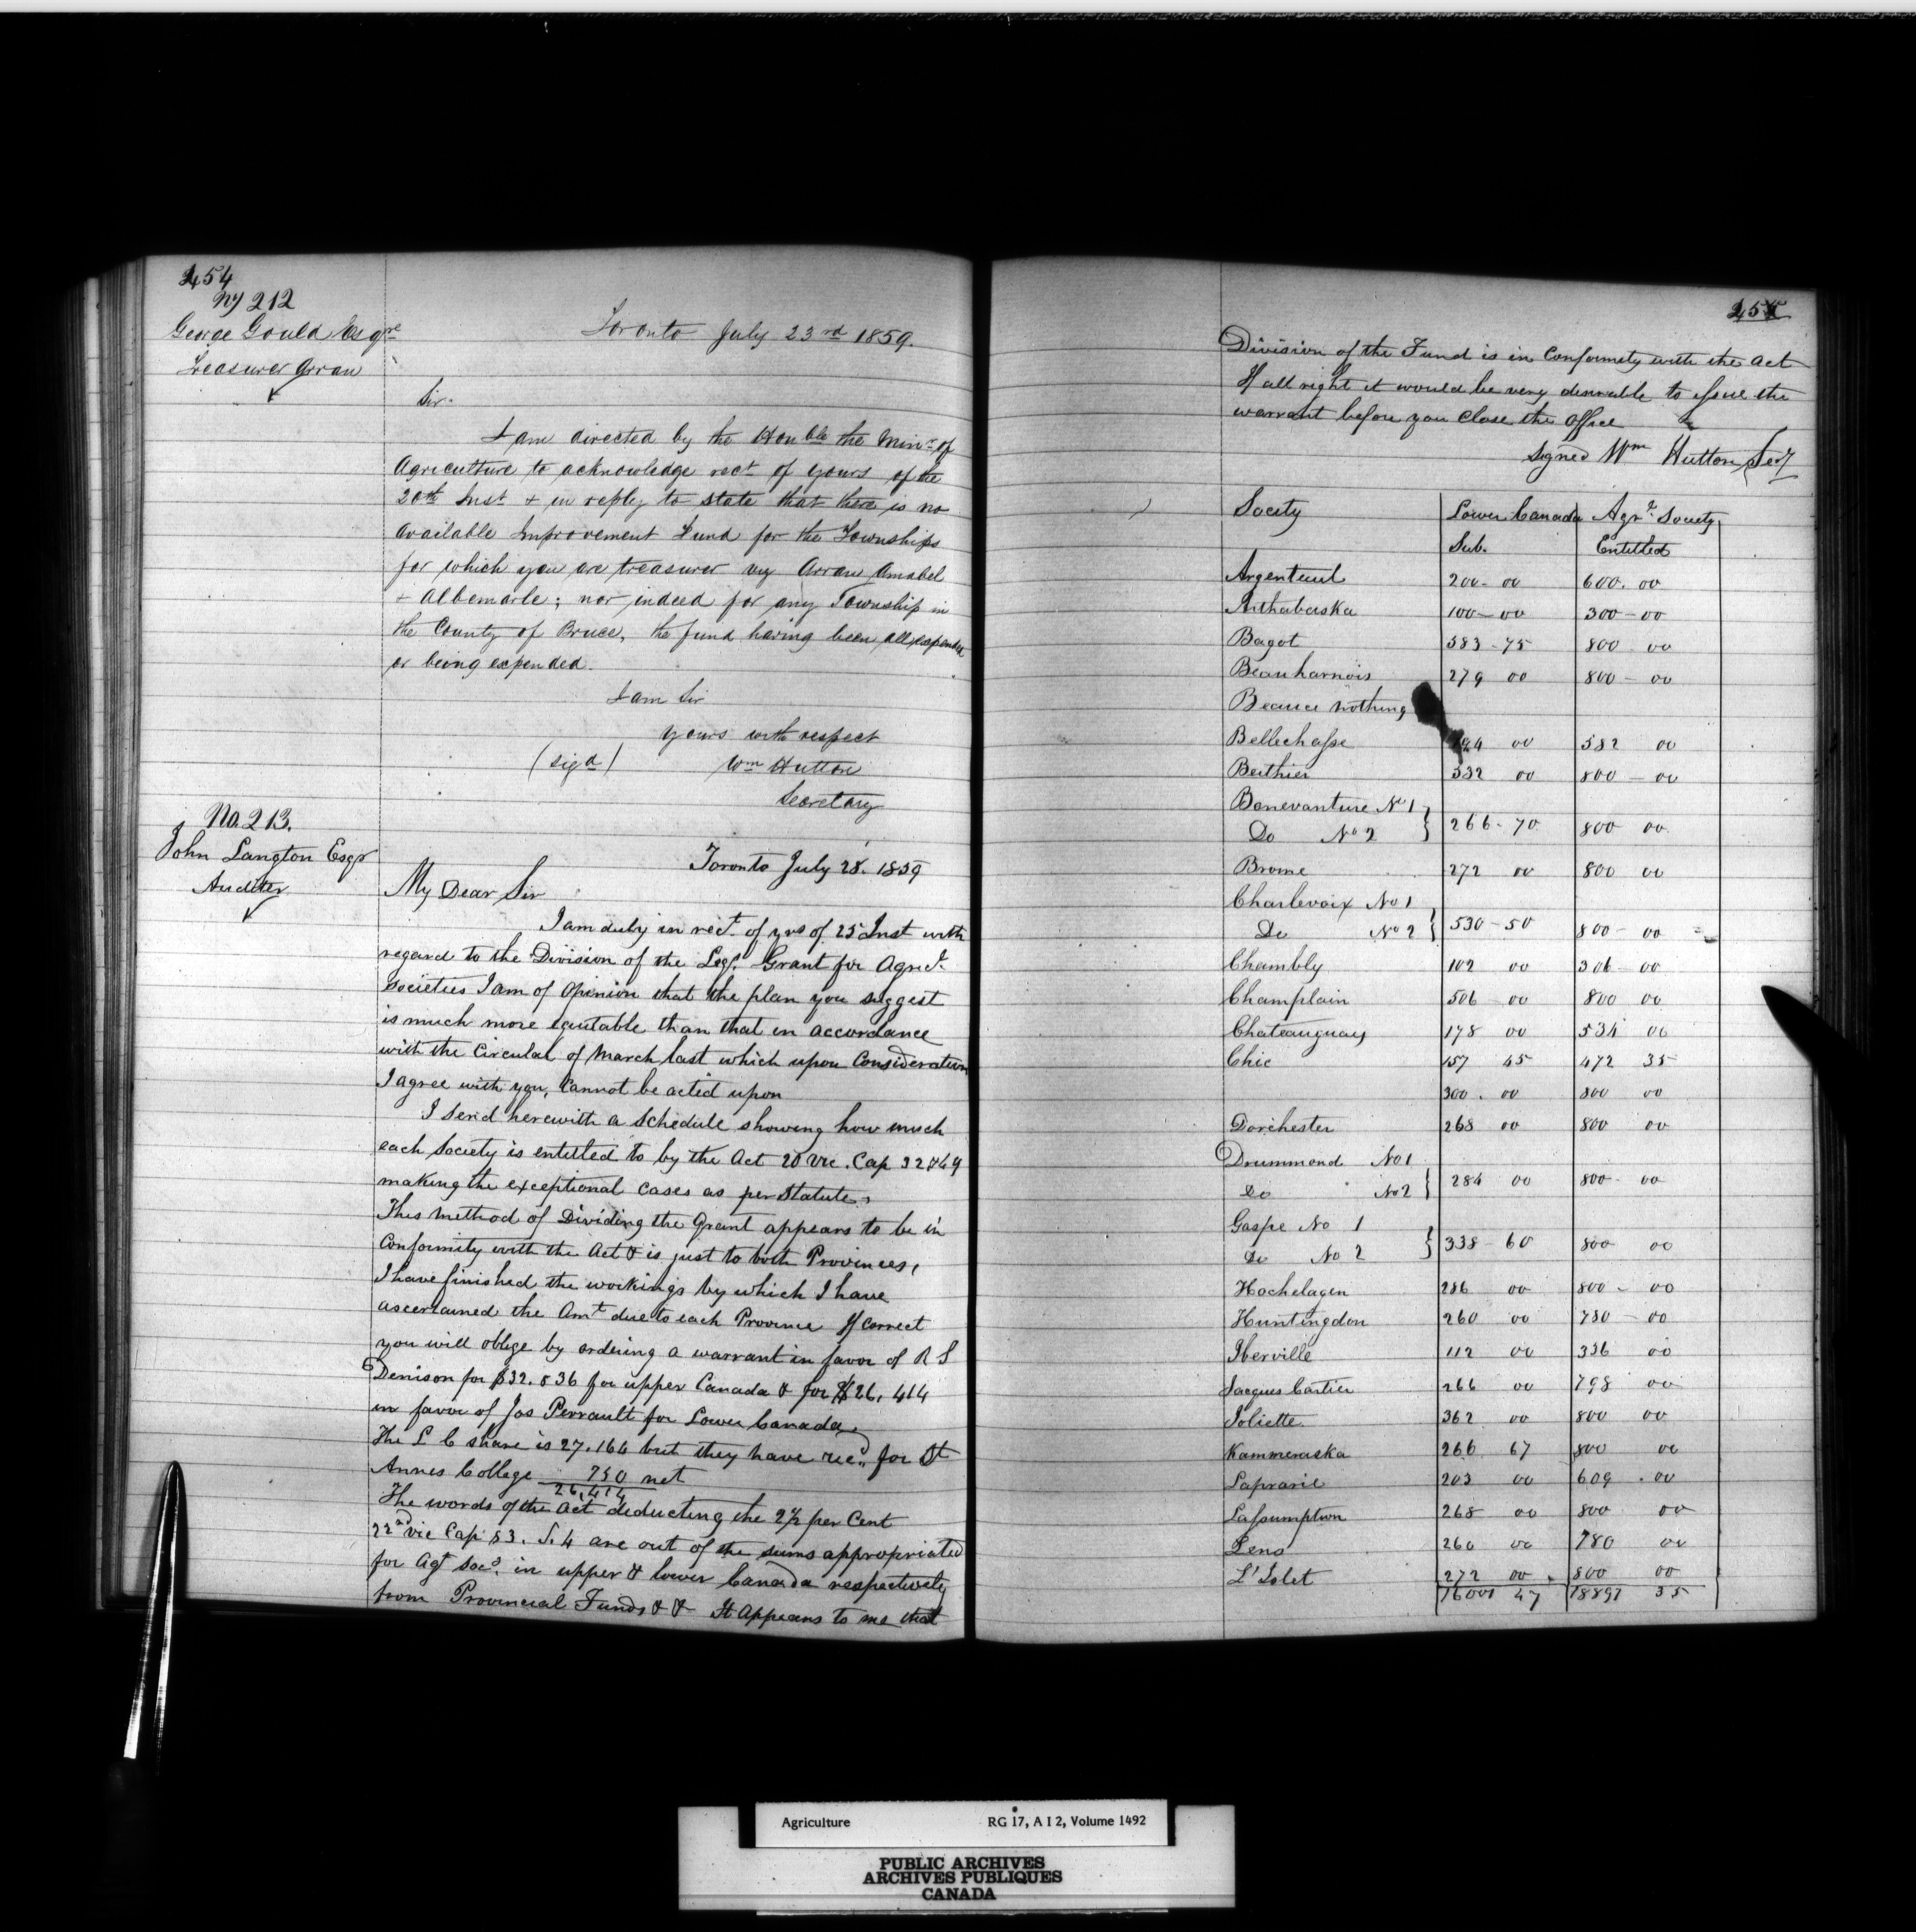 254
No 212
George Gould Esqre
Treasurer Arran
Toronto July 23rd 1859.
Sir.
I am directed by the Honble the Minr of
Agriculture to acknowledge rect of yours of the
20th Inst & in reply to state that there is no
available Improvement Fund for the Townships
for which you are treasurer viz Arran Amabel
& Albemarle; nor indeed for any Township in
the County of Bruce, the fund having been all expended
or being expended.
I am Sir
yours with respect
(sigd) Wm Hutton
Secretary
No. 213.
John Langton Esqr
Auditor
Toronto July 28. 1859
My Dear Sir
I am duly in rect. of yrs of 25 Inst with
regard to the Division of the Legs. Grant for Agricl.
Societies I am of opinion that the plan you suggest
is much more equitable than that in accordance
with the Circular of March last which upon Consideration
I agree with you, Cannot be acted upon
I send herewith a Schedule showing how much
each Society is entitled to by the Act 20 Vic. Cap 32 & 49
making the exceptional cases as per Statute,
This method of Dividing the Grant appears to be in
Conformity with the Act & is just to both Provinces,
I have finished the workings by which I have
ascertained the Amt due to each Province If Correct
you will oblige by ordering a warrant in favor of R S
Denison for $32.536 for upper Canada & for $26,414
in favor of Jos Perrault for Lower Canada,
The L C share is 27.164 but they have recd for St
Annes College 750 net
26,414
The words of the Act deducting the 2½ per Cent
22nd Vic Cap 83. S. 4 are out of the sums appropriated
for Agl Socs. in upper & lower Canada respectively
from Provincial Funds & & It Appears to me that
255
Division of the Fund is in Conformity with the Act
If all right it would be very desirable to issue the
warrant before you Close the Office
Signed Wm Hutton Secy
Society Lower Canada Agrl Society
Sub. Entitled
Argenteuil 200-00 600.00
Arthabaska 100-00 300-00
Bagot 383-75 800 00
Beauharnois 279 00 800-00
Beauce nothing
Bellechasse 194 00 582 00
Berthier 332 00 800-00
Bonevanture No 1
Do No 2 } 266-70 800 00
Brome 272 00 800 00
Charlevoix No 1
Do No 2 } 530-50 800-00
Chambly 102 00 306-00
Champlain 506 00 800 00
Chateauguay 178 00 534 00
Chic 157 45 472 35
300.00 800 00
Dorchester 268 00 800 00
Drummond No 1
Do No 2 } 284 00 800-00
Gaspe No 1
Do No 2 } 338-60 800 00
Hochelagen 286 00 800-00
Huntingdon 260 00 780-00
Iberville 112 00 336 00
Jacques Cartier 266 00 798 00
Joliette 362 00 800 00
Kammeraska 266 67 800 00
Laprarie 203 00 609.00
Lassumption 268 00 800 00
Lens 260 00 780 00
L'Islet 272 00 800 00
16001 47 18897 35
Agriculture RG 17, A I 2, Volume 1492
PUBLIC ARCHIVES
ARCHIVES PUBLIQUES
CANADA